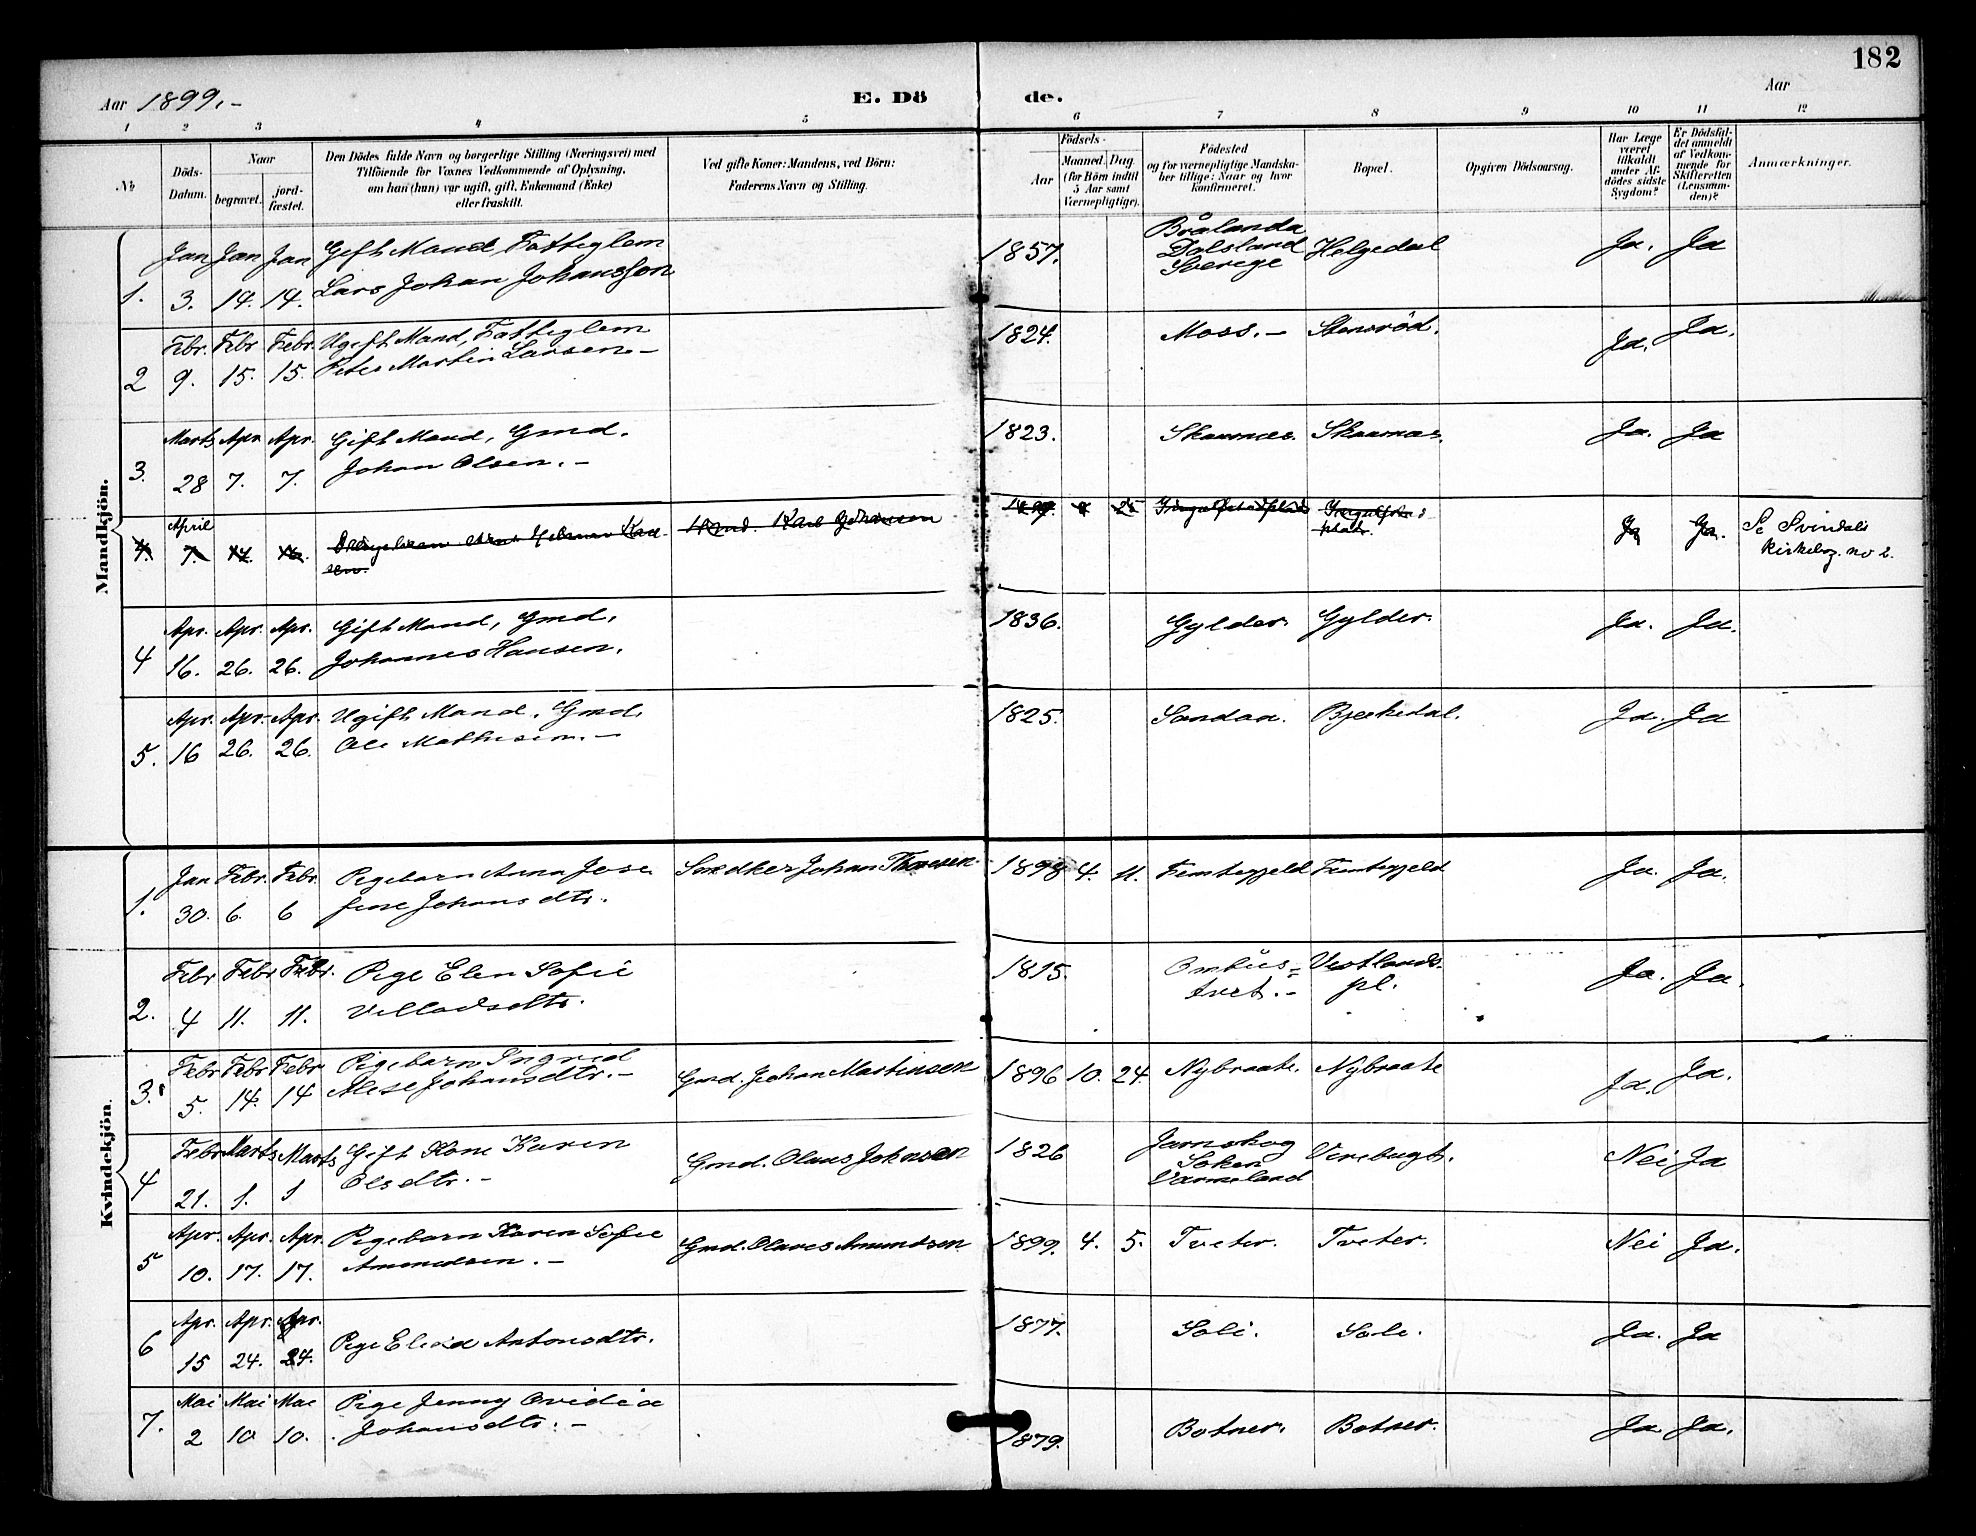 182
Aar 1899.-
E. Dö
de.
Aar
1 2 3 4 5 6 7 8 9 10 11 12
No
Döds-Datum.
Naar
begravet.
jord-fæstet.
Den Dödes fulde Navn og borgerlige Stilling (Næringsvei) med
Tilföiende for Voxnes Vedkommende af Oplysning,
om han (hun) var ugift, gift, Enkemand (Enke)
eller fraskilt.
Ved gifte Koner: Mandens, ved Börn:
Faderens Navn og Stilling.
Födsels-
Aar
Maaned Dag
(for Börn indtil
5 Aar samt
Værnepligtige).
Födested
og for værnepligtige Mandska-
ber tillige: Naar og hvor
konfirmeret.
Bopæl.
Opgiven Dödsaarsag.
Har Læge
været
tilkaldt
under Af-
dödes sidste
Sygdom?
Er Dödsfal-
det anmeldt
af Vedkom-
mende for
Skifteretten
(Lensman-
den)?
Anmærkninger.
Mandkjön.
1. Jan 3. Jan 14. Jan 14. Gift Mand, Fattiglem
Lars Johan Johansson
1857. Brålanda
Dalsland
Sverege
Helgedal Ja. Ja
2 Febr. 9. Febr 15. Febr. 15. Ugift Mand, Fattiglem
Peter Martin Larsen.-
1824. Moss.- Stensröd. Ja. Ja.
3. Marts 28 Apr. 7. Apr. 7. Gift Mand, Gmd.
Johan Olsen.-
1823. Skaarnes. Skaarnes. Ja. Ja
4. April 7. 14. 16.
Hmd. Karl Johansen
1899. 25 Ja Ja. Se Svindals
Kirkebog. no 2.
4 Apr. 16. Apr. 26. Apr. 26. Gift Mand, Gmd.
Johannes Hansen.
1836. Gylder. Gylder. Ja. Ja.
5. Apr. 16 Apr. 26. Apr. 26. Ugift Mand. Gmd.
Ole Mathisen.-
1825. Sandaa. Bjerkedal. Ja. Ja
Kvindekjön.
1. Jan 30. Febr. 6. Febr. 6 Pigebarn Anna Jose
fine Johansdtr.
Snedker Johan Thoresen. 1898 4. 11. Femterjeld Femterjeld Ja. Ja.
2. Febr 4 Febr 11. Febr. 11. Pige Elen Sofie
Villadsdtr.
1815. Ombùs=
tvet.- Vestlands-
pl. Ja. Ja.
3. Febr 5. Febr 14. Febr 14 Pigebarn Ingrid
Alese Johansdtr.-
Gmd. Johan Martinsen 1896 10. 24. Nybraate. Nybraate Ja. Ja.
4 Febr 21. Marts 1. Marts 1 Gift Kone Karen
Olsdtr.-
Gmd. Olaus Johnsen 1826 Jarnskog
Soken
Varmeland
Virebugt. Nei Ja
5 Apr. 10. Apr. 17. Apr. 17. Pigebarn Karen Sofie
Amundsen.-
Gmd. Olaves Amundsen 1899. 4. 5. Tveter. Tveter. Nei Ja.
6 Apr. 15 Apr. 24. Apr. 24. Pige Elid Antonsdtr.
1877. Soli. Soli. Ja. Ja
7. Mai 2 Mai 10 Mai 10. Pige Jenny Ovidia
Johansdtr.-
1879. Botner. Botner. Ja Ja.